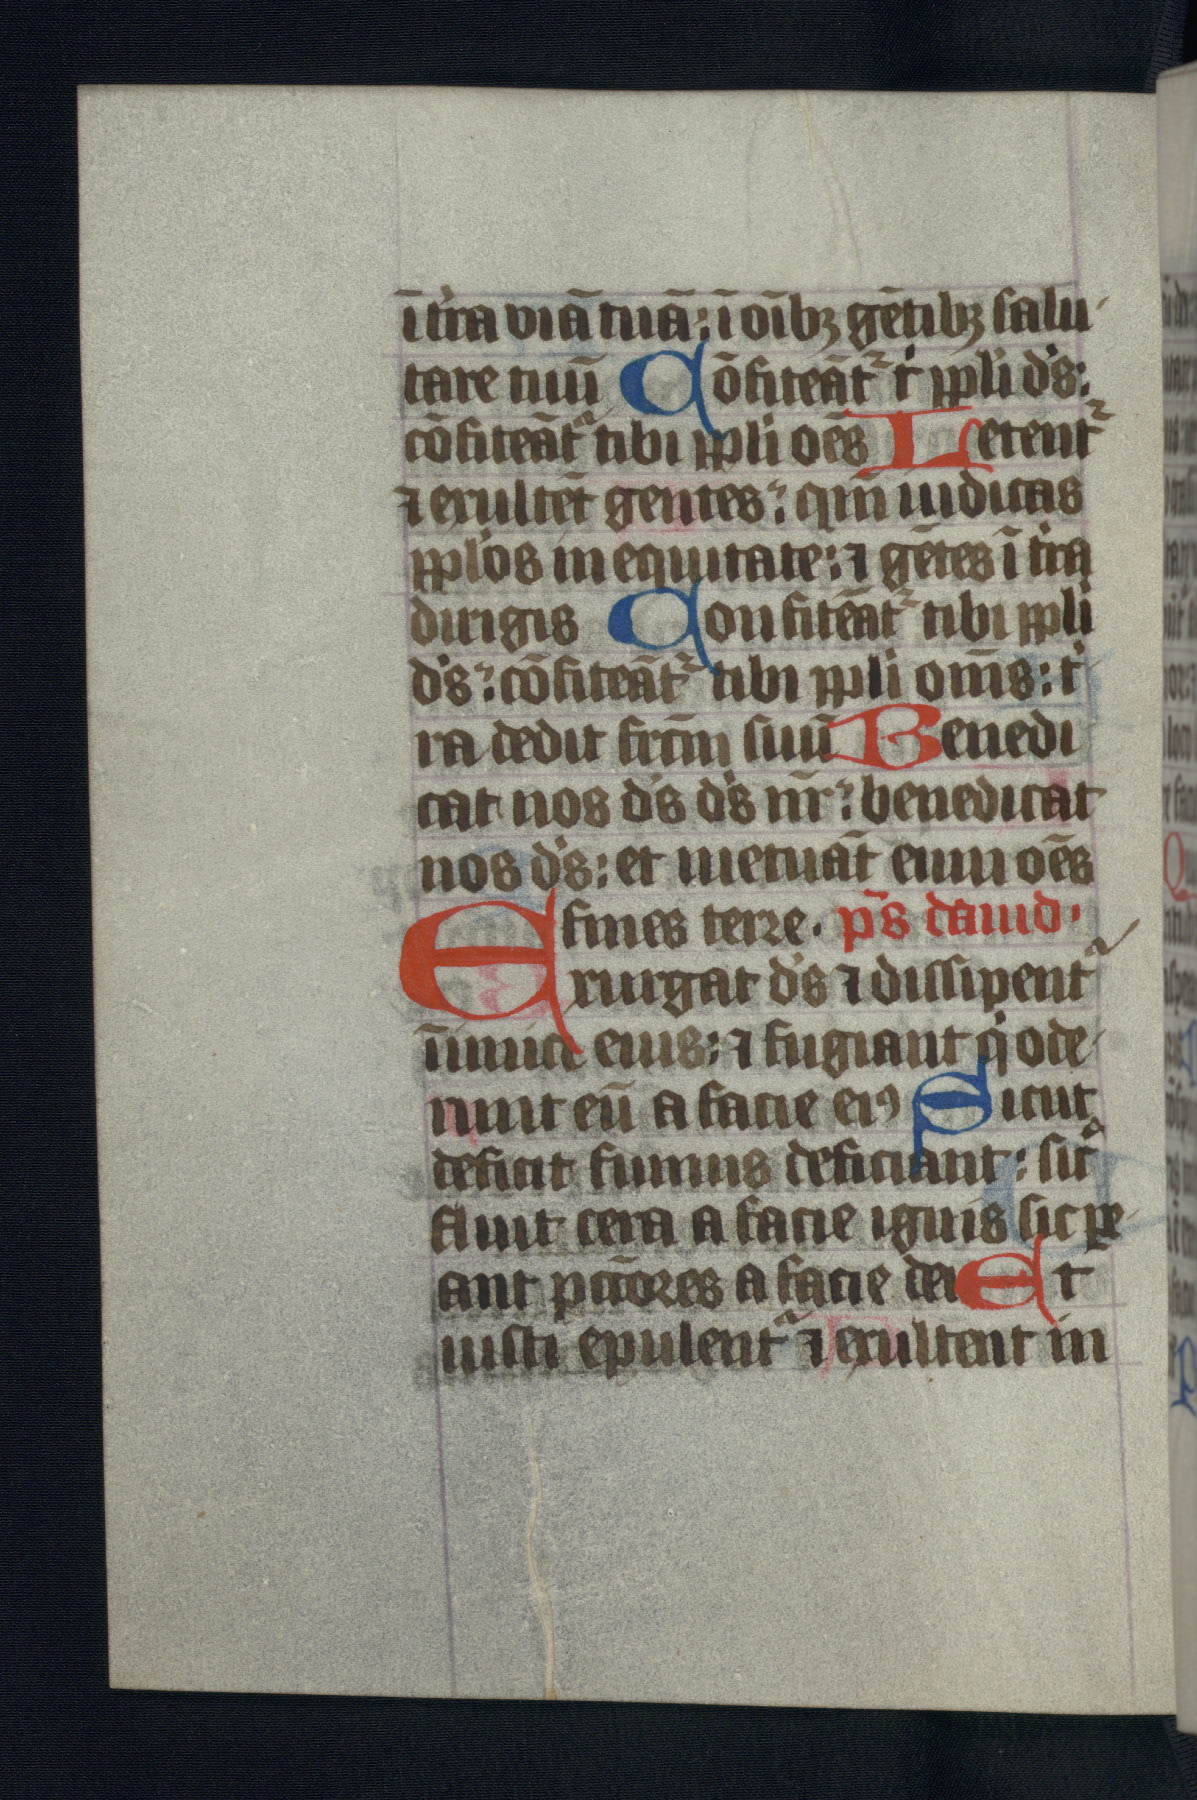 ī tr̄a viā tuā: ī oībꝫ gētibꝫ salu-
tare tuū Cōfiteāt᷑ t̄ ppl̄i d̄s:
cōfiteāt᷑ tibi ppl̄i oēs Letent᷑
⁊ exultēt gentes: qm̄ iudicas
ppl̄os in equitate: ⁊ gētes ī tr̄a
dirigis Confiteāt᷑ tibi ppl̄i
d̄s: cōfiteāt᷑ tibi ppl̄i om̄s: t̄
ra dedit frc̄m suū Benedi
cat nos d̄s d̄s nr̄: benedicat
nos d̄s: et metuāt eum oēs
fines terre. p̄s dauid.
Exurgat d̄s ⁊ dissipent᷑
īimici eius: ⁊ fugiant q̄ ode-
runt eū a facie eiꝰ Sicut
deficit fumus deficiant: sic᷑
fluit cera a facie ignis sic pe-
ant pc̄tores a facie dei Et
iusti epulent᷑ ⁊ exultent in